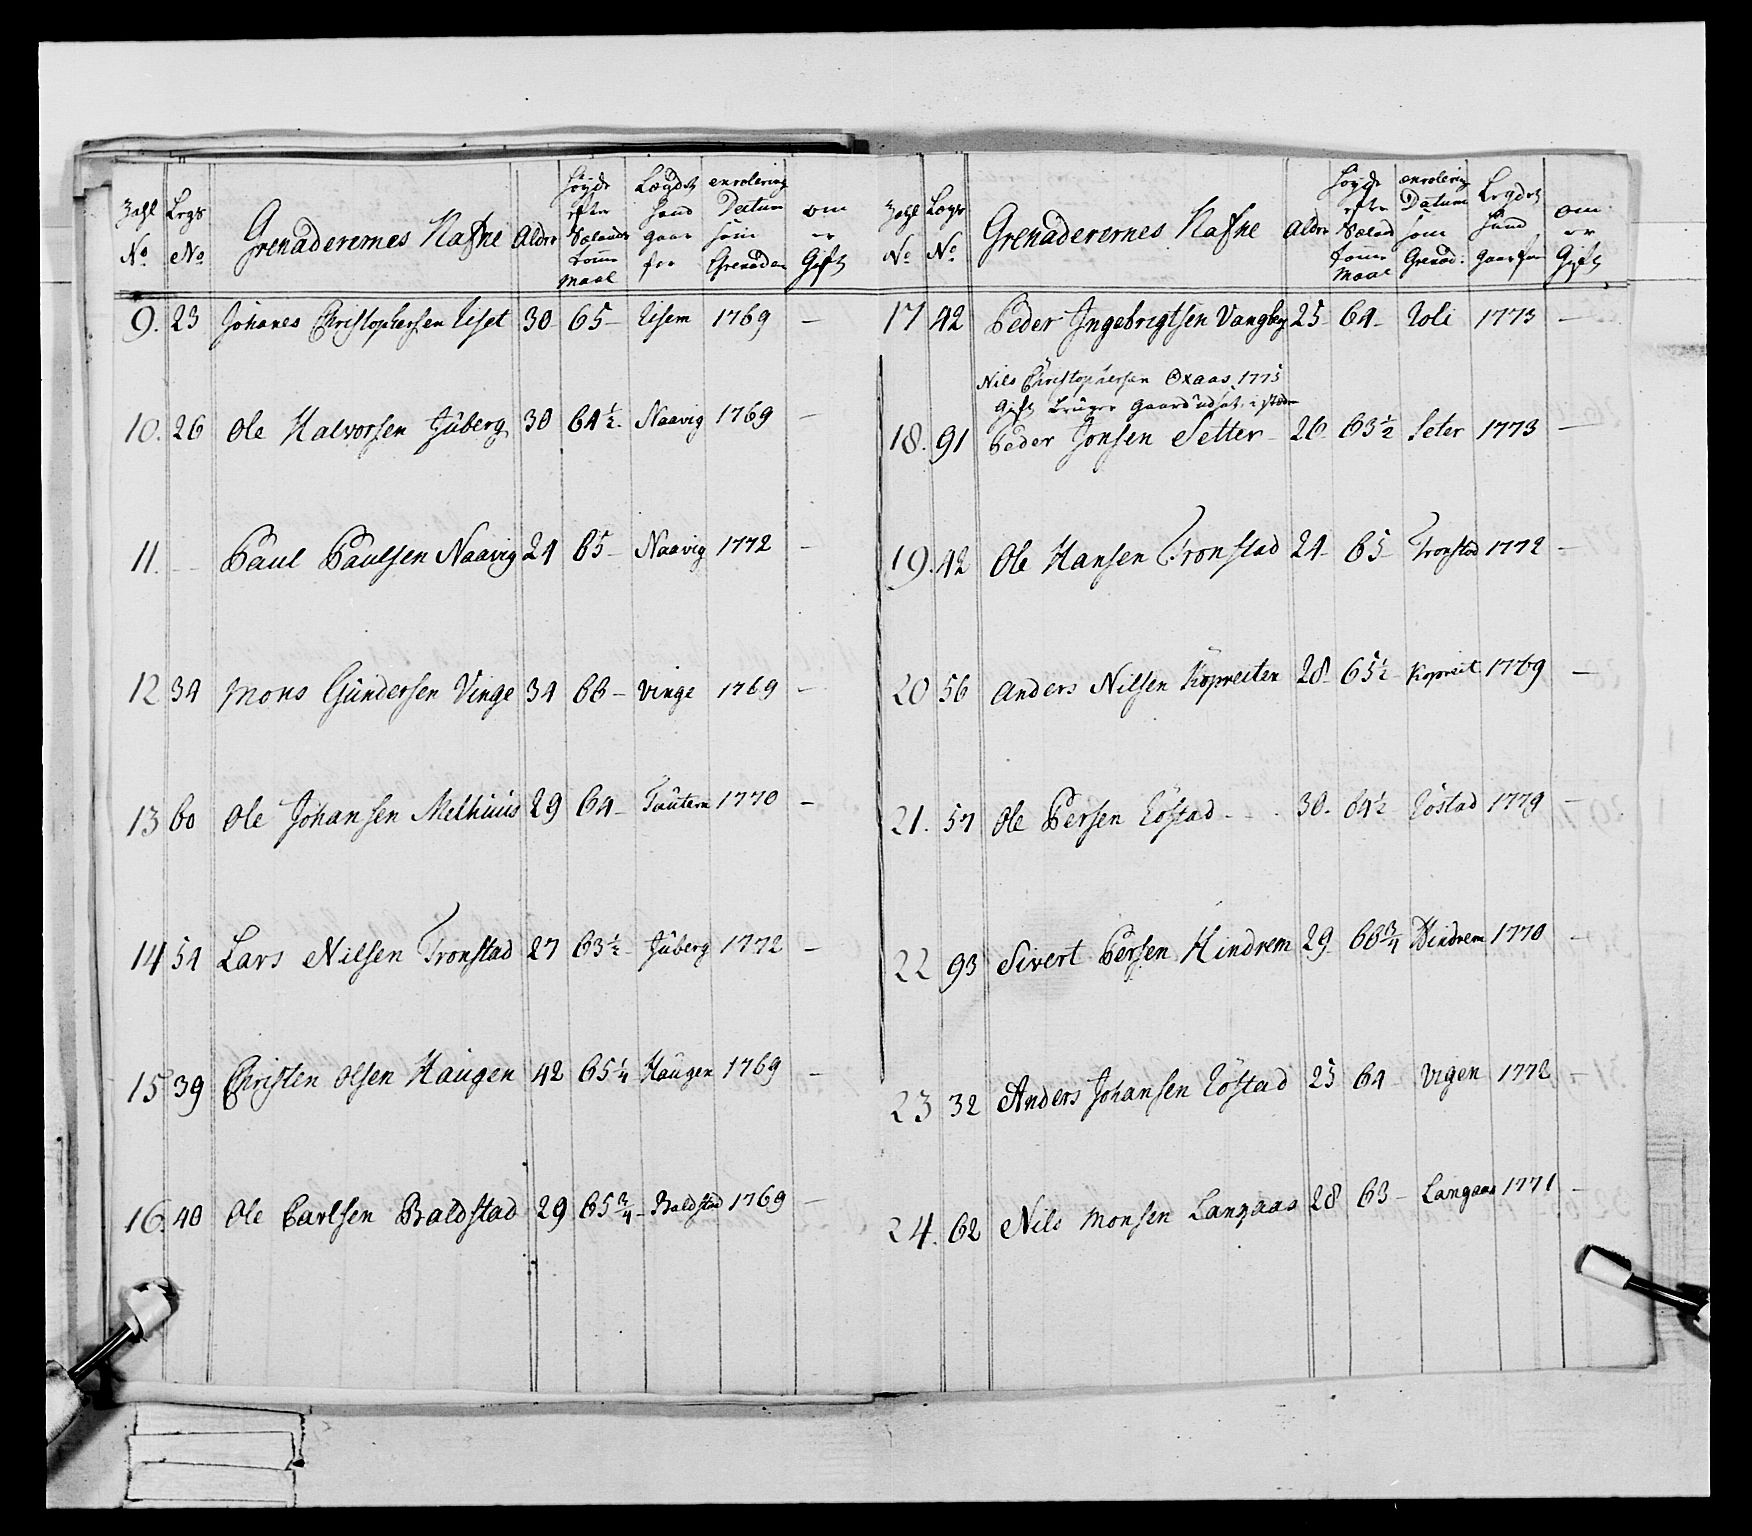 Zahl No
Legs No
Grenaderernes Nafne
Alder
Høyde efter Sælands tome Maal
Lægdet hand gaar for
enrolering Datum som Grenader
om er Gift
9. 23 Johanes Christophersen Liset 30 65 – Lisem 1769 –
10. 26 Ole Halvorsen Jüberg 30 64½ Naavig 1769 –
11. Paul Paulsen Naavig 24 65 – Naavig 1772 –
12 34 Mons Gündersen Vinge 34 66 – Vinge 1769 –
13 60 Ole Johansen Melhuus 29 64 – Tüütern 1770 –
14 54 Lars Nilsen Tronstad 27 63½ Jüberg 1772 –
15 39 Christen Olsen Haügen 42 65¼ Haügen 1769 –
16. 40 Ole Carlsen Baldstad 29 65¾ – Baldstad 1769 –
Zahl No
Legs No
Grenaderernes Nafne
Alder
Høyde efter Sæland tome Maal
enrolering Datum som Grenad:
Legdet hand gaar for
om er Gift
17 42 Peder Ingebrigtsen Vangberg 25 64 – Loli 1773 –
Nils Christophersen Oxaas 1775
Gift brüger Gaard üdsat, i steden
18. 91 Peder Jonsen Setter 26 63½ Seter 1773 –
19. 42 Ole Hansen Tronstad 24 65 Tronstad 1772 –
20 56 Anders Nilsen Kopreiten 28 65½ Kopreit 1769 –
21. 57 Ole Persen Löstad 30. 64½ Löstad 1779 –
22 93 Sivert Persen Hindrem 29 66¾ Hindrem 1770 –
23 32 Anders Johansen Löstad 25 64 – Vigen 1772 –
24. 62 Nils Monsen Langaas 28 63 – Langaas 1771 –